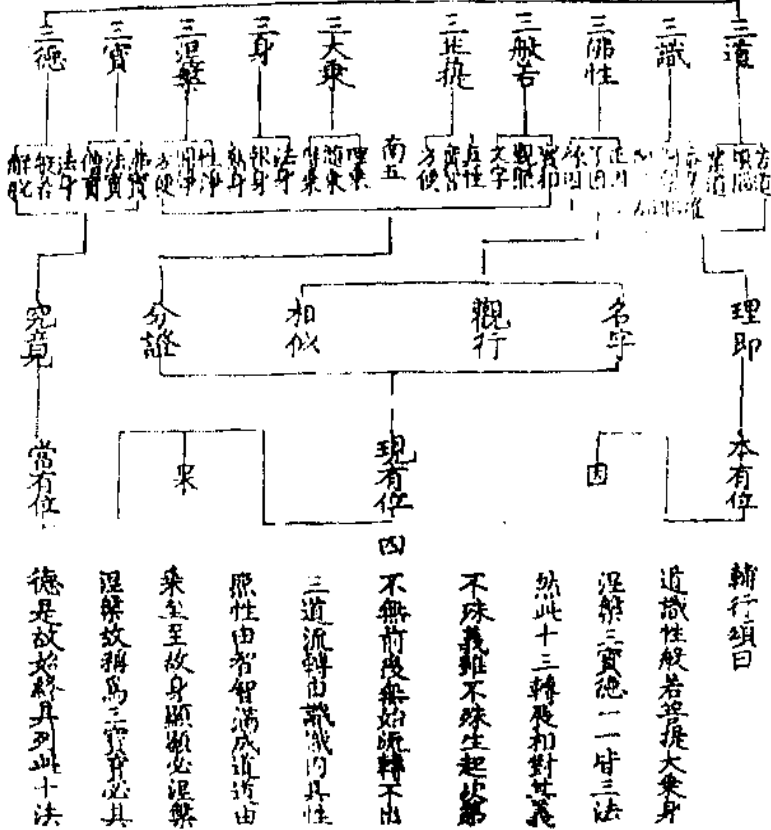 三道
三識
三佛性
三般若
三菩提
三大乘
三身
三涅槃
三寶
三德
苦道
煩惱
業道
正因
了因
緣因
實相
觀照
文字
真性
實智
方便
南五
理乘
隨乘
得乘
法身
報身
應身
性淨
圓淨
方便
佛寶
法寶
僧寶
法身
般若
解脫
理即
名字
觀行
相似
分證
究竟
本有位
因
現有位
果
常有位
四
輔行頌曰
道識性般若菩提大乘身
涅槃三寶德一一皆三法
然此十三轉展相對其義
不殊義雖不殊生起次第
不無前後無始流轉不出
三道流轉由識識內具性
照性由智智滿成道道由
乘至至故身顯顯必涅槃
涅槃故稱為三寶寶必具
德是故始終具列此十法